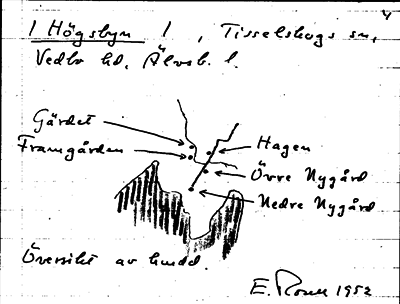 4
1 Högsbyn 1, Tisselskogs sn,
Vedbo hd, Älvsb. l.
Gärdet
Framgården
Hagen
Övre Nygård
Nedre Nygård
Översikt av
E. 1952